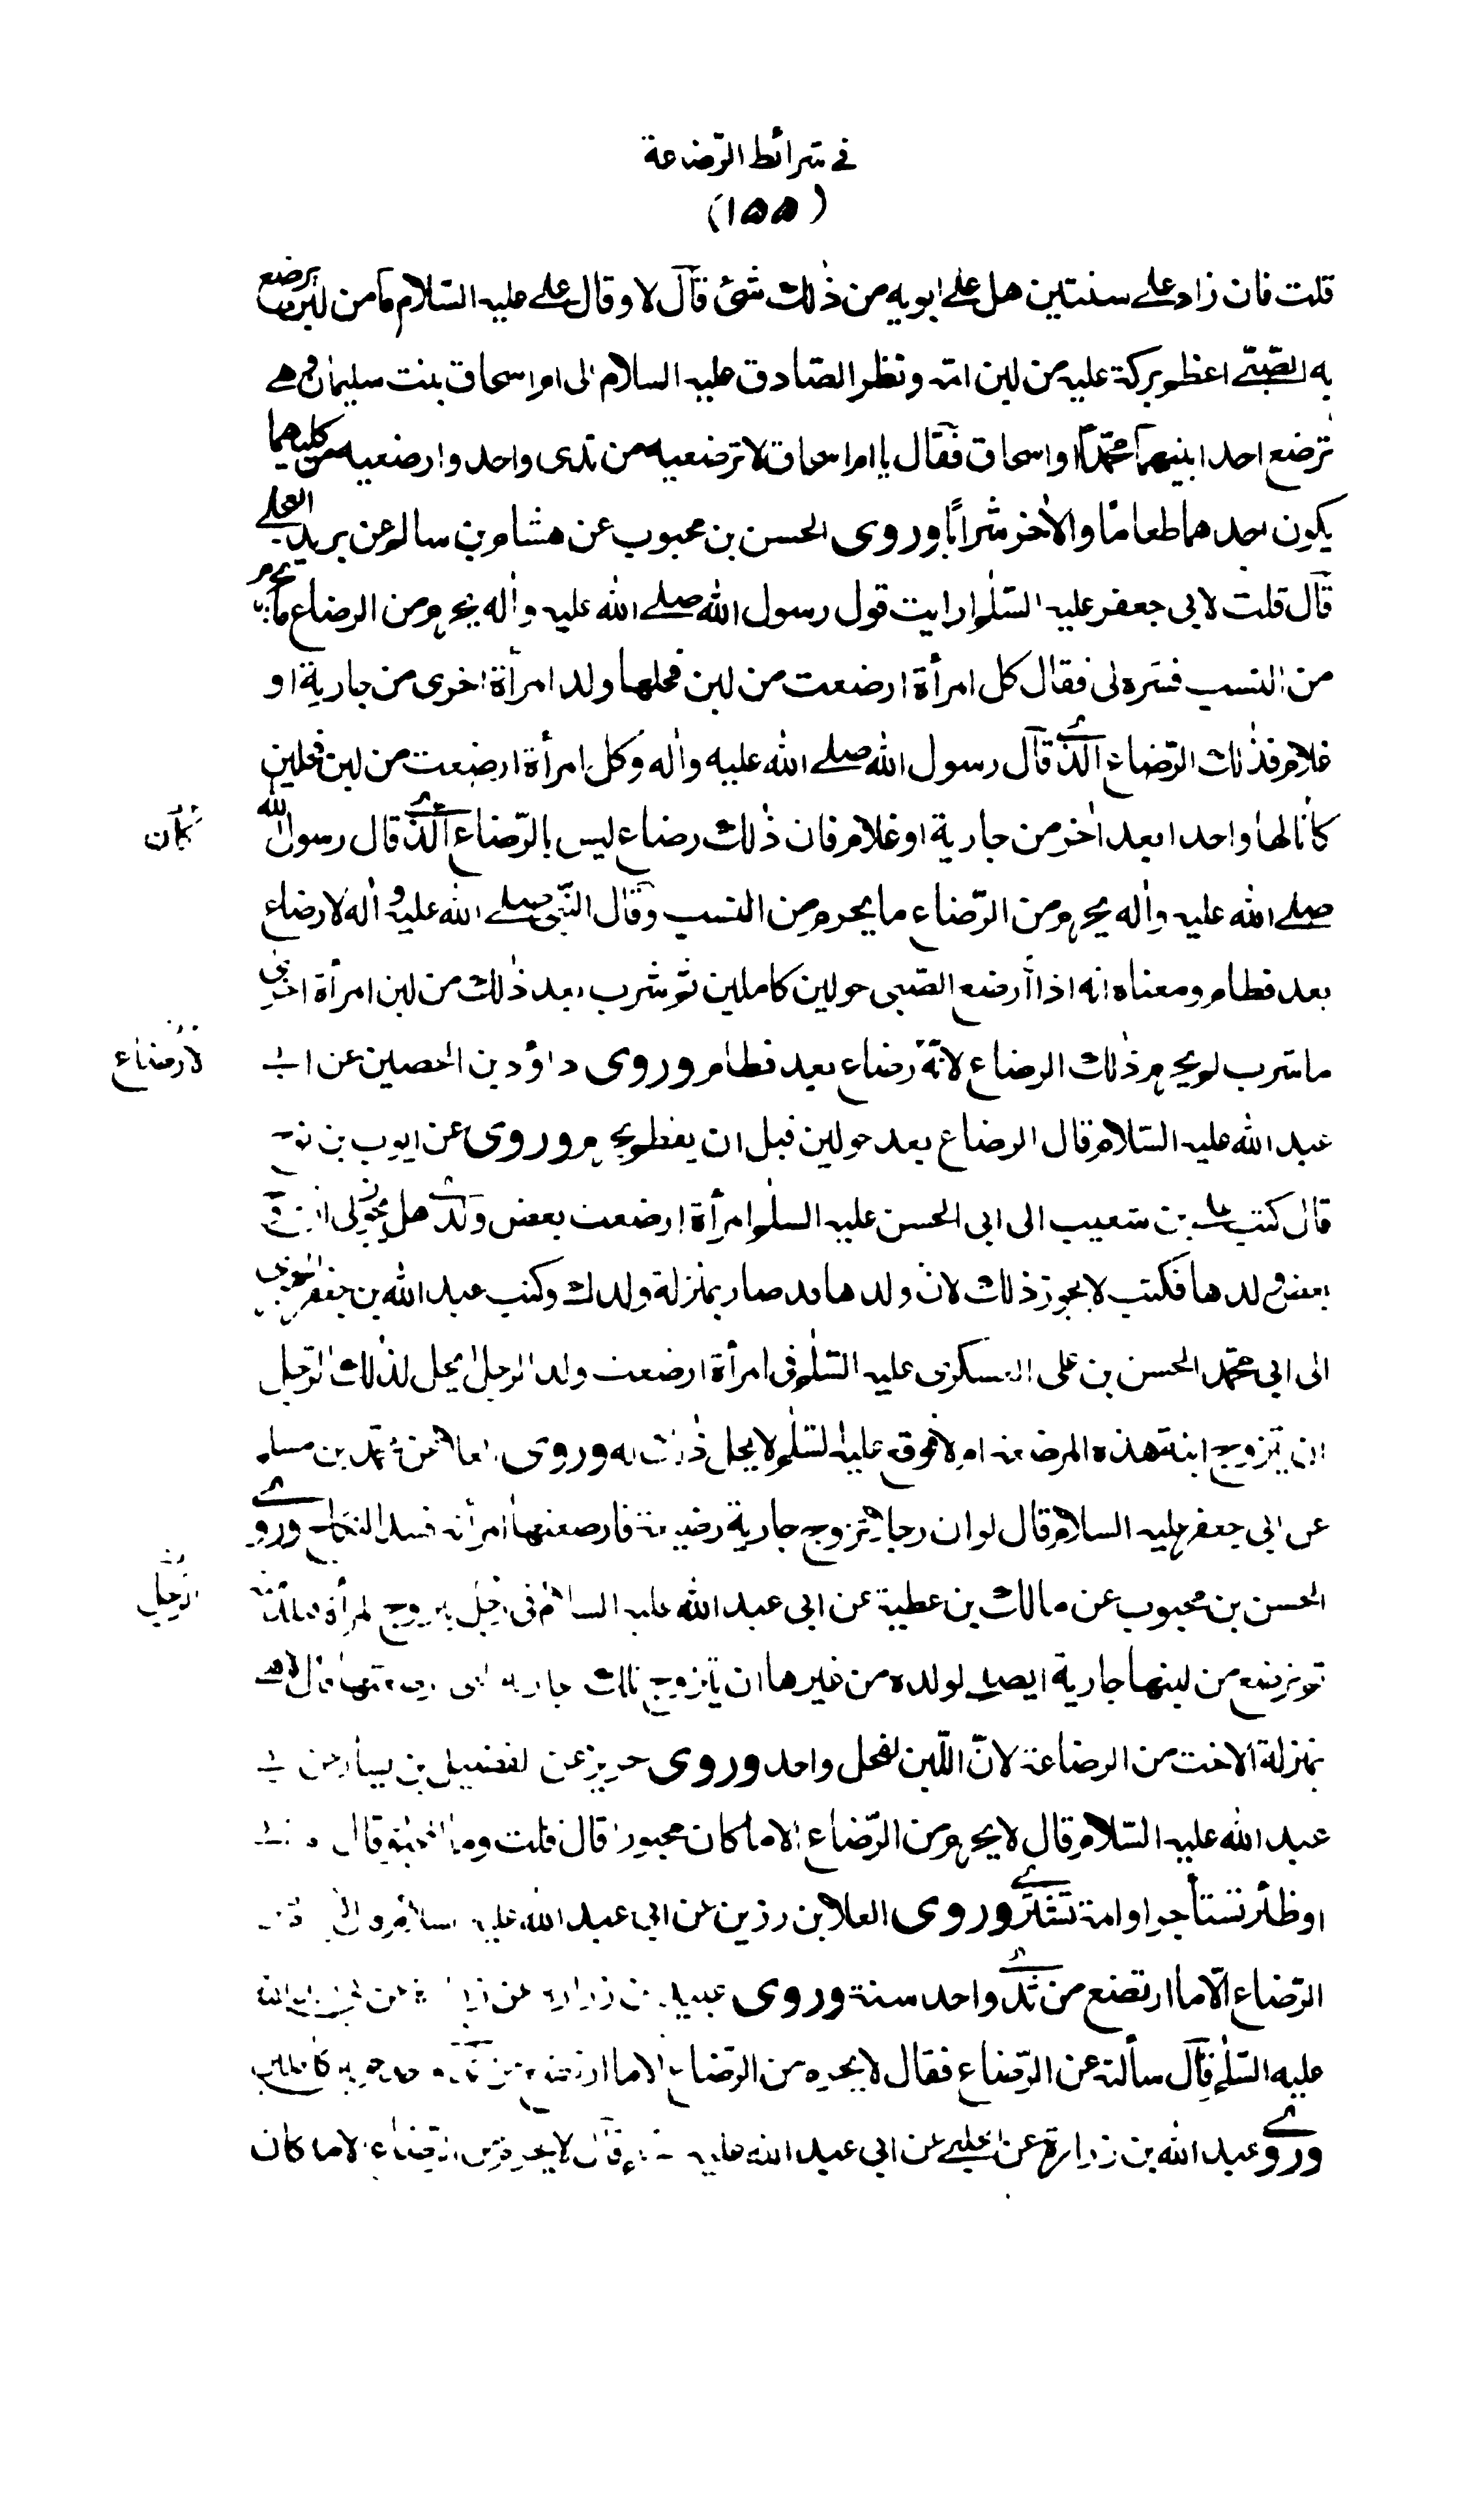 في شرائط الرّضاعة
(١٥٥)
قلت فان زاد على سنتين هل على ابويه من ذٰلك شئ قال لا وقال على عليه السّلام ما من لبن يرضع
به الصّبىّ اعظم بركة عليه من لبن امّه ونظر الصّادق عليه السلام الى ام اسحاق بنت سليمان وهى
ترضع احد ابنيها محمّدًا او اسحاق فقال يا ام اسحاق لا ترضعيه من ثدى واحد وارضعيه من كليهما
يكون احدهما طعامًا والاٰخر شرابًا وروى الحسن بن محبوب عن هشام بن سالم عن بريد العجلى
قال قلت لابى جعفر عليه السّلٰم ارايت قول رسول الله صلى الله عليه واٰله يحرم من الرضاع ما يحرم
من النسب فسّره لى فقال كل امرأة ارضعت من لبن فحلها ولد امرأة اخرى من جارية او
غلام فذٰلك الرّضاع الّذى قال رسول الله صلى الله عليه واٰله وكل امرأة ارضعت من لبن فحلين
كانا لها واحدا بعد اٰخر من جارية او غلام فان ذٰلك رضاع ليس بالرّضاع الّذى قال رسول الله
كان
صلى الله عليه واٰله يحرم من الرّضاع ما يحرم من النسب وقال النّبى صلى الله عليه واٰله لا رضاع
بعد فطام ومعناه انه اذا ارضع الصّبى حولين كاملين ثم شرب بعد ذٰلك من لبن امرأة اخرى
ما شرب لم يحرم ذٰلك الرضاع لانّه رضاع بعد فطام وروى داؤد بن الحصين عن ابى
لا رضاع
عبد الله عليه السّلام قال الرضاع بعد حولين قبل ان يفطم يحرم وروى عن ايوب بن نوح
قال كتب على بن شعيب الى ابى الحسن عليه السلٰم امرأة ارضعت بعض ولدى هل يجوز لى ان اتزوج
بعض ولدها فكتب لا يجوز ذلك لان ولدها قد صار بمنزلة ولدك وكتب عبد الله بن جعفر الحميرى
الى ابى محمّد الحسن بن على العسكرى عليه السّلٰم فى امرأة ارضعت ولد الرجل ايحل لذٰلك الرّجل
ان يتزوج ابنة هذه المرضعة ام لا فوقع عليه السّلٰم لا يحل ذٰلك له وروى العلا عن محمّد بن مسلم
عن ابى جعفر عليه السلام قال لو ان رجلا تزوج جارية رضيعة فارضعتها امرأته فسد النكاح وروى
الحسن بن محبوب عن مالك بن عطية عن ابى عبد الله عليه السلام فى رجل يتزوج امرأة
الرجل
ثم ترضع من لبنها جارية ايصلح لولده من غيرها ان يتزوج تلك جارية قال لا هى
بمنزلة الاخت من الرضاعة لانّ اللّبن لفحل واحد وروى حريز عن الفضيل بن يسار عن ابى
عبد الله عليه السّلام قال لا يحرم من الرّضاع الا ما كان مجبورا قال قلت وما المجبور قال
او ظئر تستأجر او امة تشترى وروى العلا بن رزين عن ابى عبد الله عليه السلام
الرّضاع الّا ما ارتضع من ثدى واحد سنة وروى عبيد بن زرارة عن زرارة عن ابى عبد الله
عليه السّلٰم قال سألته عن الرّضاع فقال لا يحرم من الرّضاع الا ما ارتضع حولين كاملين
وروى عبد الله بن زرارة عن الحلبى عن ابى عبد الله عليه السلام قال لا يحرم من الرضاع الا ما كان